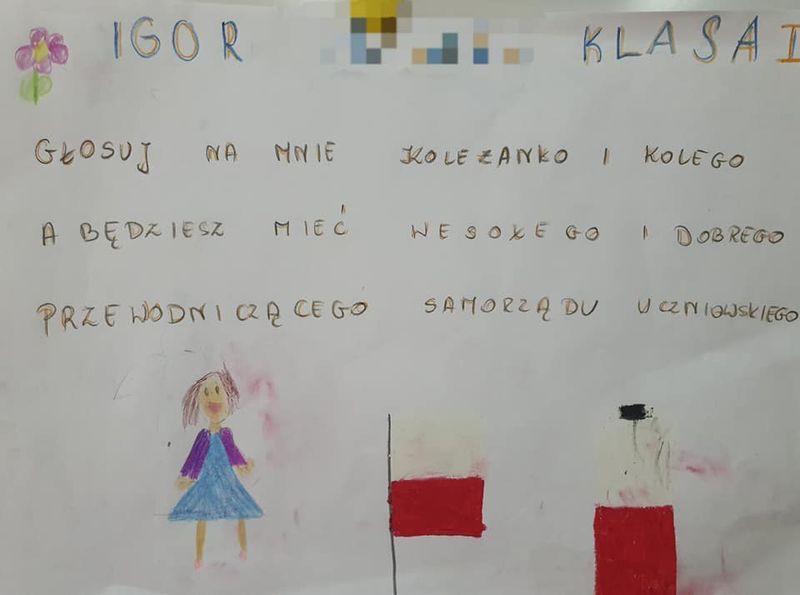 IGOR KLASA I
GŁOSUJ NA MNIE KOLEŻANKO I KOLEGO
A BĘDZIESZ MIEĆ WESOŁEGO I DOBREGO
PRZEWODNICZĄCEGO SAMORZĄDU UCZNIOWSKIEGO